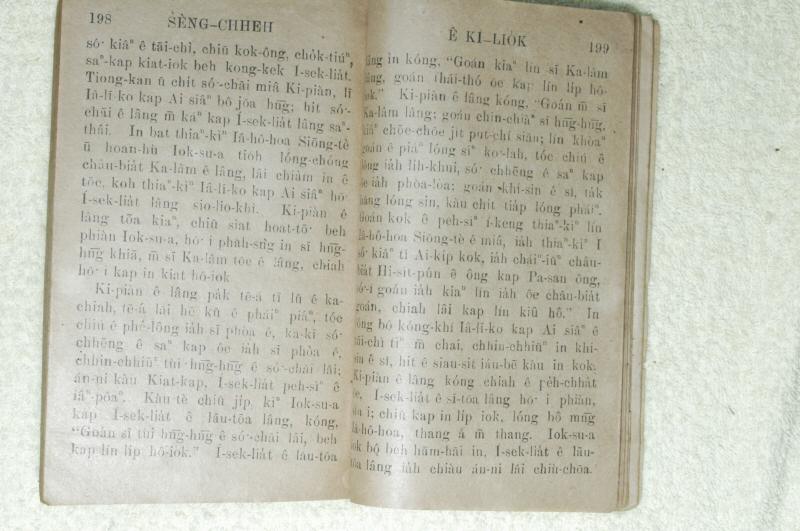 198 SÈNG-CHHEH
só͘ kiâⁿ ê tāi-chì, chiū kok-ông, cho̍k-tiúⁿ,
saⁿ-kap kiat-iok beh kong-kek Í-sek-lia̍t.
Tiong-kan ū chit só͘-chāi miâ Ki-piàn, lī
Iâ-lī-ko kap Ai siâⁿ bô jōa hn̄g; hit só͘-
chāi ê lâng m̄ káⁿ kap Í-sek-lia̍t lâng saⁿ-
thâi. In bat thiaⁿ-kìⁿ Iâ-hô-hoa Siōng-tè
ū hoan-hù Iok-su-a tio̍h lóng-chóng
châu-bia̍t Ka-lâm ê lâng, lâi chiàm in ê
tōe, koh thiaⁿ-kìⁿ Iâ-lī-ko kap Ai siâⁿ hō͘
Í-sek-lia̍t lâng sio-lio̍-khì. Ki-piàn ê
lâng tōa kiaⁿ, chiū siat hoat-tō͘ beh
phiàn Iok-su-a, hō͘ i phah-sǹg in sī hn̄g-
hn̄g khiā, m̄ sī Ka-lâm tōe ê lâng, chiah
hō͘ i kap in kiat hô-iok.
Ki-piàn ê lâng pa̍k tē-á tī lû ê ka-
chiah, tē-á lāi hē kū ê pháiⁿ piáⁿ, tóe
chiú ê phê-lông ia̍h sī phòa ê, ka-kī só͘
chhēng ê saⁿ kap ôe ia̍h sī phòa ê,
chhin-chhiūⁿ tùi hn̄g-hn̄g ê só͘-chāi lâi;
án-ni kàu Kiat-kap, Í-sek-lia̍t peh-sìⁿ ê
iâⁿ-pôaⁿ. Kàu-tè chiū ji̍p kìⁿ Iok-su-a
kap Í-sek-lia̍t ê lāu-tōa lâng, kóng,
“Goán sī tùi hn̄g-hn̄g ê só͘-chāi lâi, beh
kap lín li̍p hô-iok.” Í-sek-lia̍t ê lāu-tōa
Ê KÌ-LIO̍K 199
lâng in kóng, “Goán kiaⁿ lín sī Ka-lâm
lâng, goán thài-thó ōe kap lín li̍p hô-
iok.” Ki-piàn ê lâng kóng, “Goán m̄ sī
Ka-lâm lâng; goán chin-chiàⁿ sī hn̄g-hn̄g,
kiâⁿ chōe-chōe ji̍t put-chí siān; lín khòaⁿ
goán ê piáⁿ lóng siⁿ ko͘-lah, tóe chiú ê
lông ia̍h li̍h-khui, só͘ chhēng ê saⁿ kap
ôe ia̍h phòa-lōa; goán khí-sin ê sî, ta̍k
hāng lóng sin, kàu chit tia̍p lóng pháiⁿ.
Goán kok ê peh-sìⁿ í-keng thiaⁿ-kìⁿ lín
Iâ-hô-hoa Siōng-tè ê miâ, ia̍h thiaⁿ-kìⁿ I
só͘ kiâⁿ tī Ai-ki̍p kok, ia̍h cháiⁿ-iūⁿ châu-
bia̍t Hi-sit-pún ê ông kap Pa-san ông,
só͘-í goán ia̍h kiaⁿ lín ia̍h ōe châu-bia̍t
goán, chiah lâi kap lín kiû hô.” In
lóng bô kóng-khí Iâ-lī-ko kap Ai siâⁿ ê
tāi-chì tìⁿ m̄ chai, chhin-chhiūⁿ in khí-
sin ê sî, hit ê siau-sit iáu-bē kàu in kok.
Ki-piàn ê lâng kóng chiah ê pe̍h-chha̍t
ōe, Í-sek-lia̍t ê sī-tōa lâng hō͘ i phiàn,
chiū kap in li̍p iok, lóng bô mn̄g
Iâ-hô-hoa, thang á m̄ thang. Iok-su-a
iok bô beh hām-hāi in, Í-sek-lia̍t ê lāu-
tōa lâng ia̍h chiàu án-ni lâi chiù-chōa.